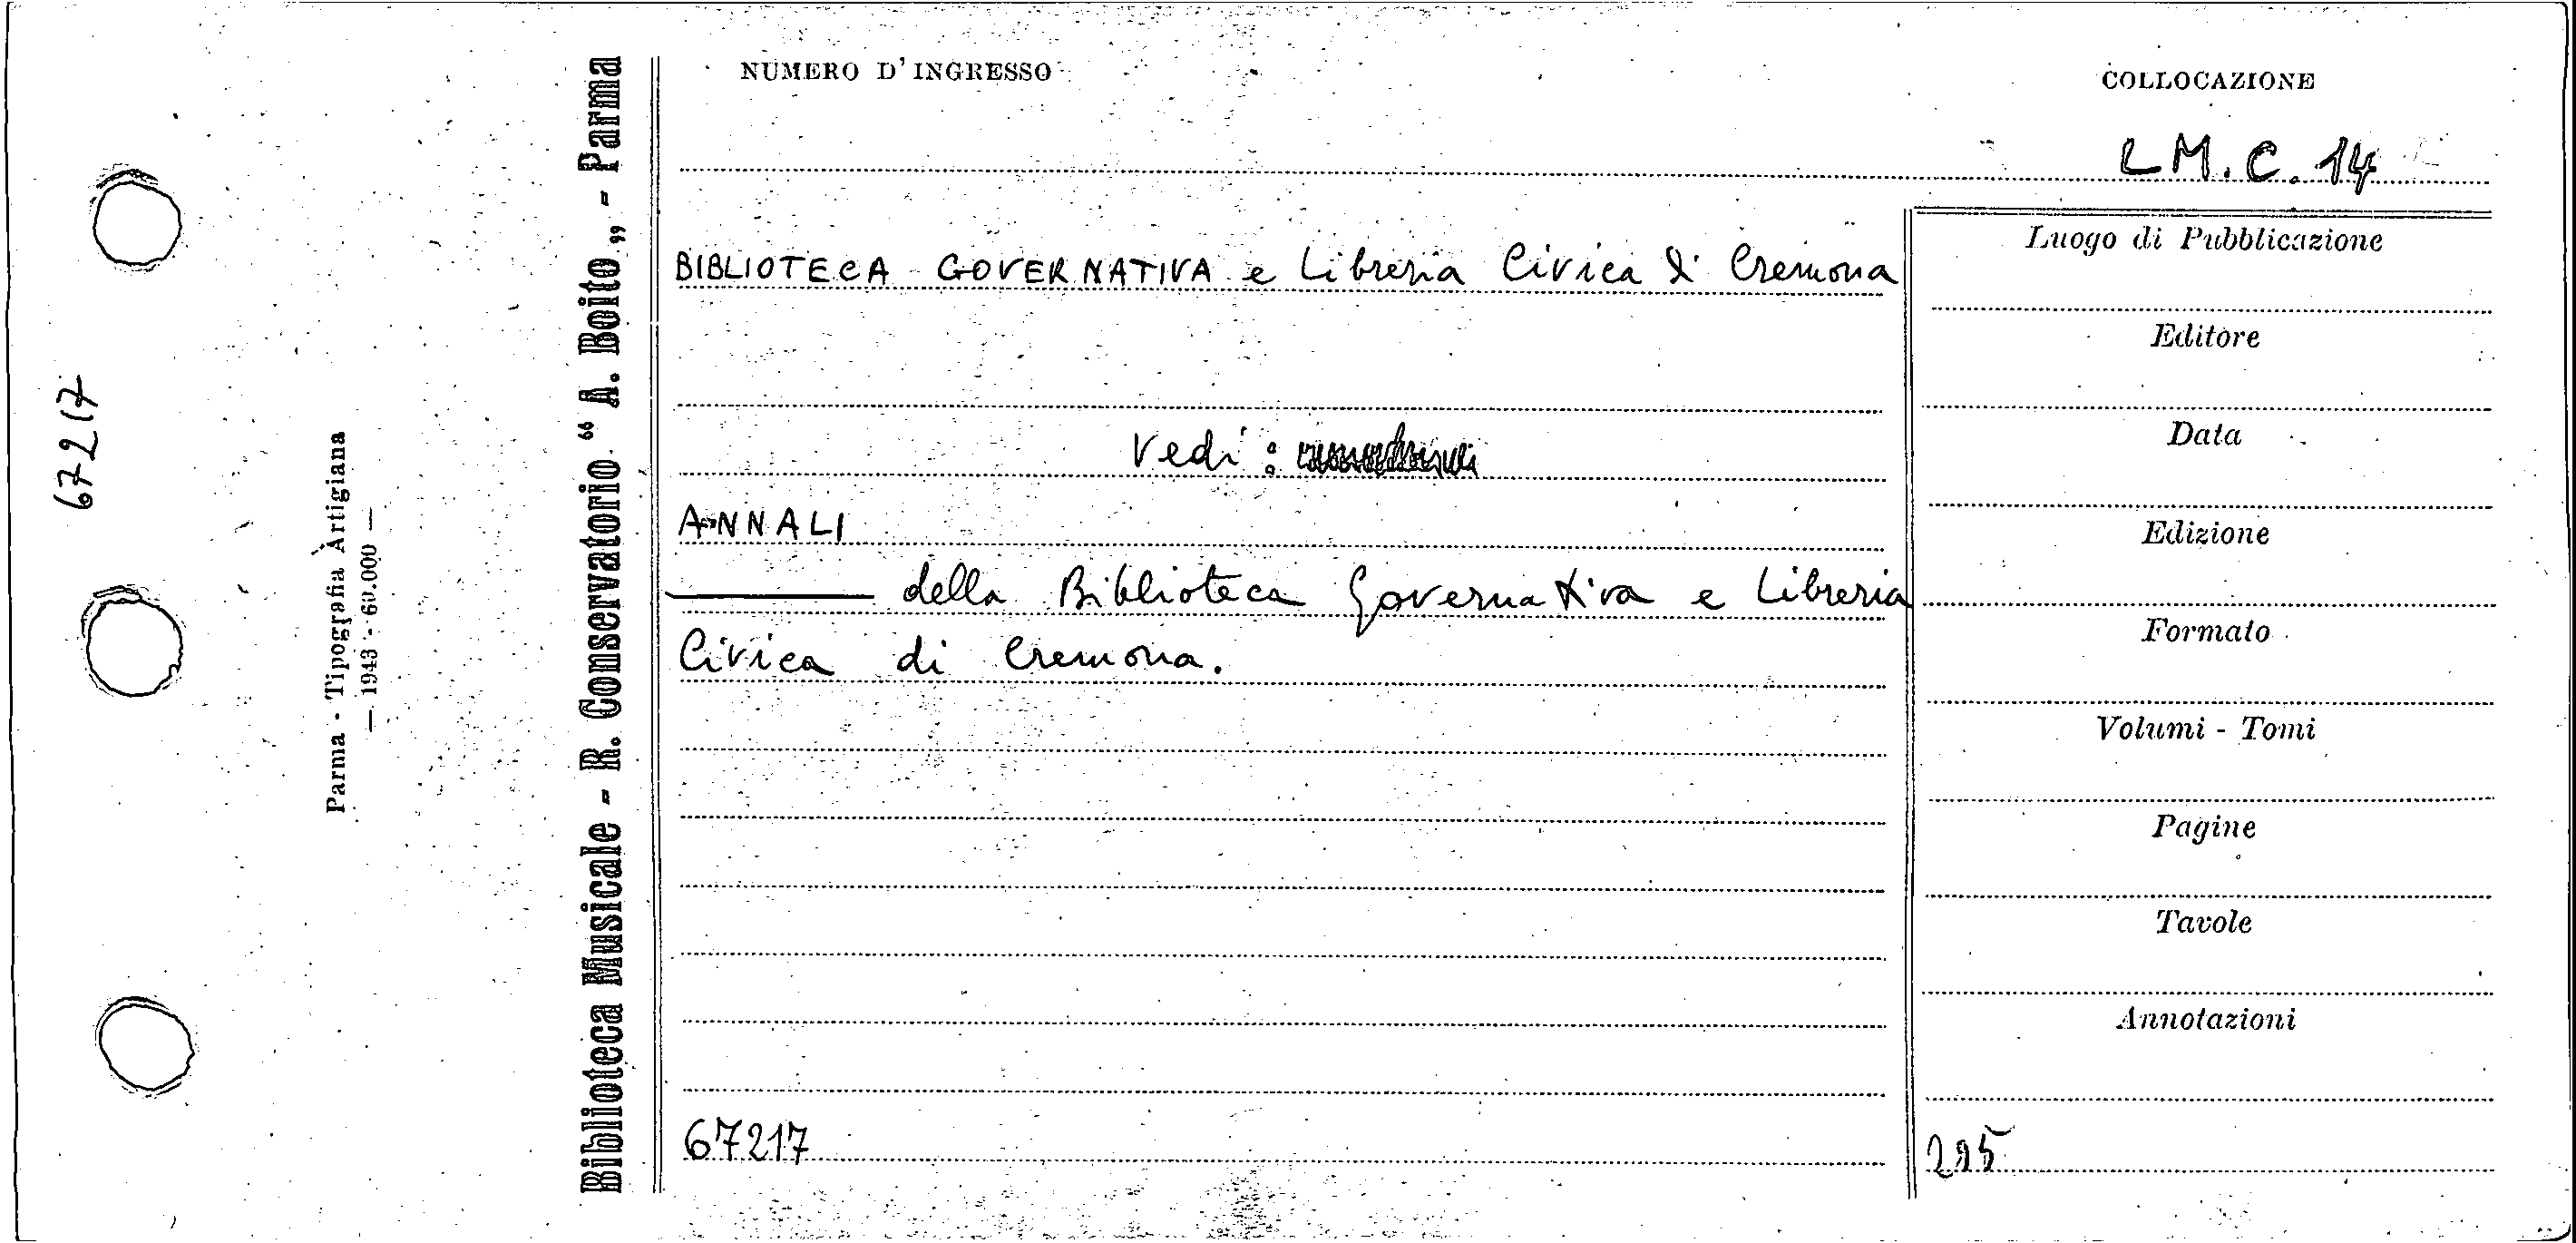 67217
Parma - Tipografia Artigiana
— 1943 - 60.000 —
Biblioteca Musicale - R. Conservatorio “ A. Boito „ - Parma
NUMERO D'INGRESSO
COLLOCAZIONE
L M. C. 14
BIBLIOTECA GOVERNATIVA e Libreria Civica di Cremona
Vedi :
ANNALI
——— della Biblioteca Governativa e Libreria
Civica di Cremona.
67217
Luogo di Pubblicazione
Editore
Data
Edizione
Formato
Volumi - Tomi
Pagine
Tavole
Annotazioni
295